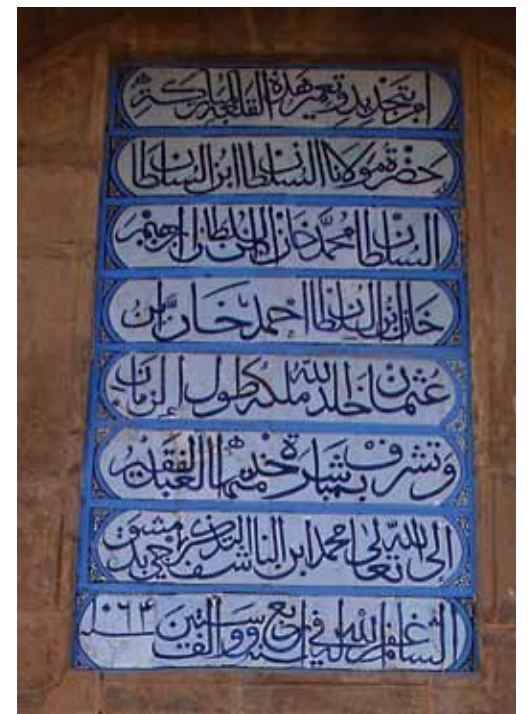 امر بتجديد وتعمير هذه القلعة المباركة
حضرة مولانا السلطان ابن السلطان
السلطان محمد خان ابن السلطان ابرهيم
خان ابن السلطان احمد خان بن
عثمان خلد الله ملكه طول الزمان
وتشرف بمباشرة خدمتها العبد الفقير
الى الله تعالى محمد ابن الناشف
الشام غفر الله له في سنة اربع وستين والف سنة ١٠٦٤